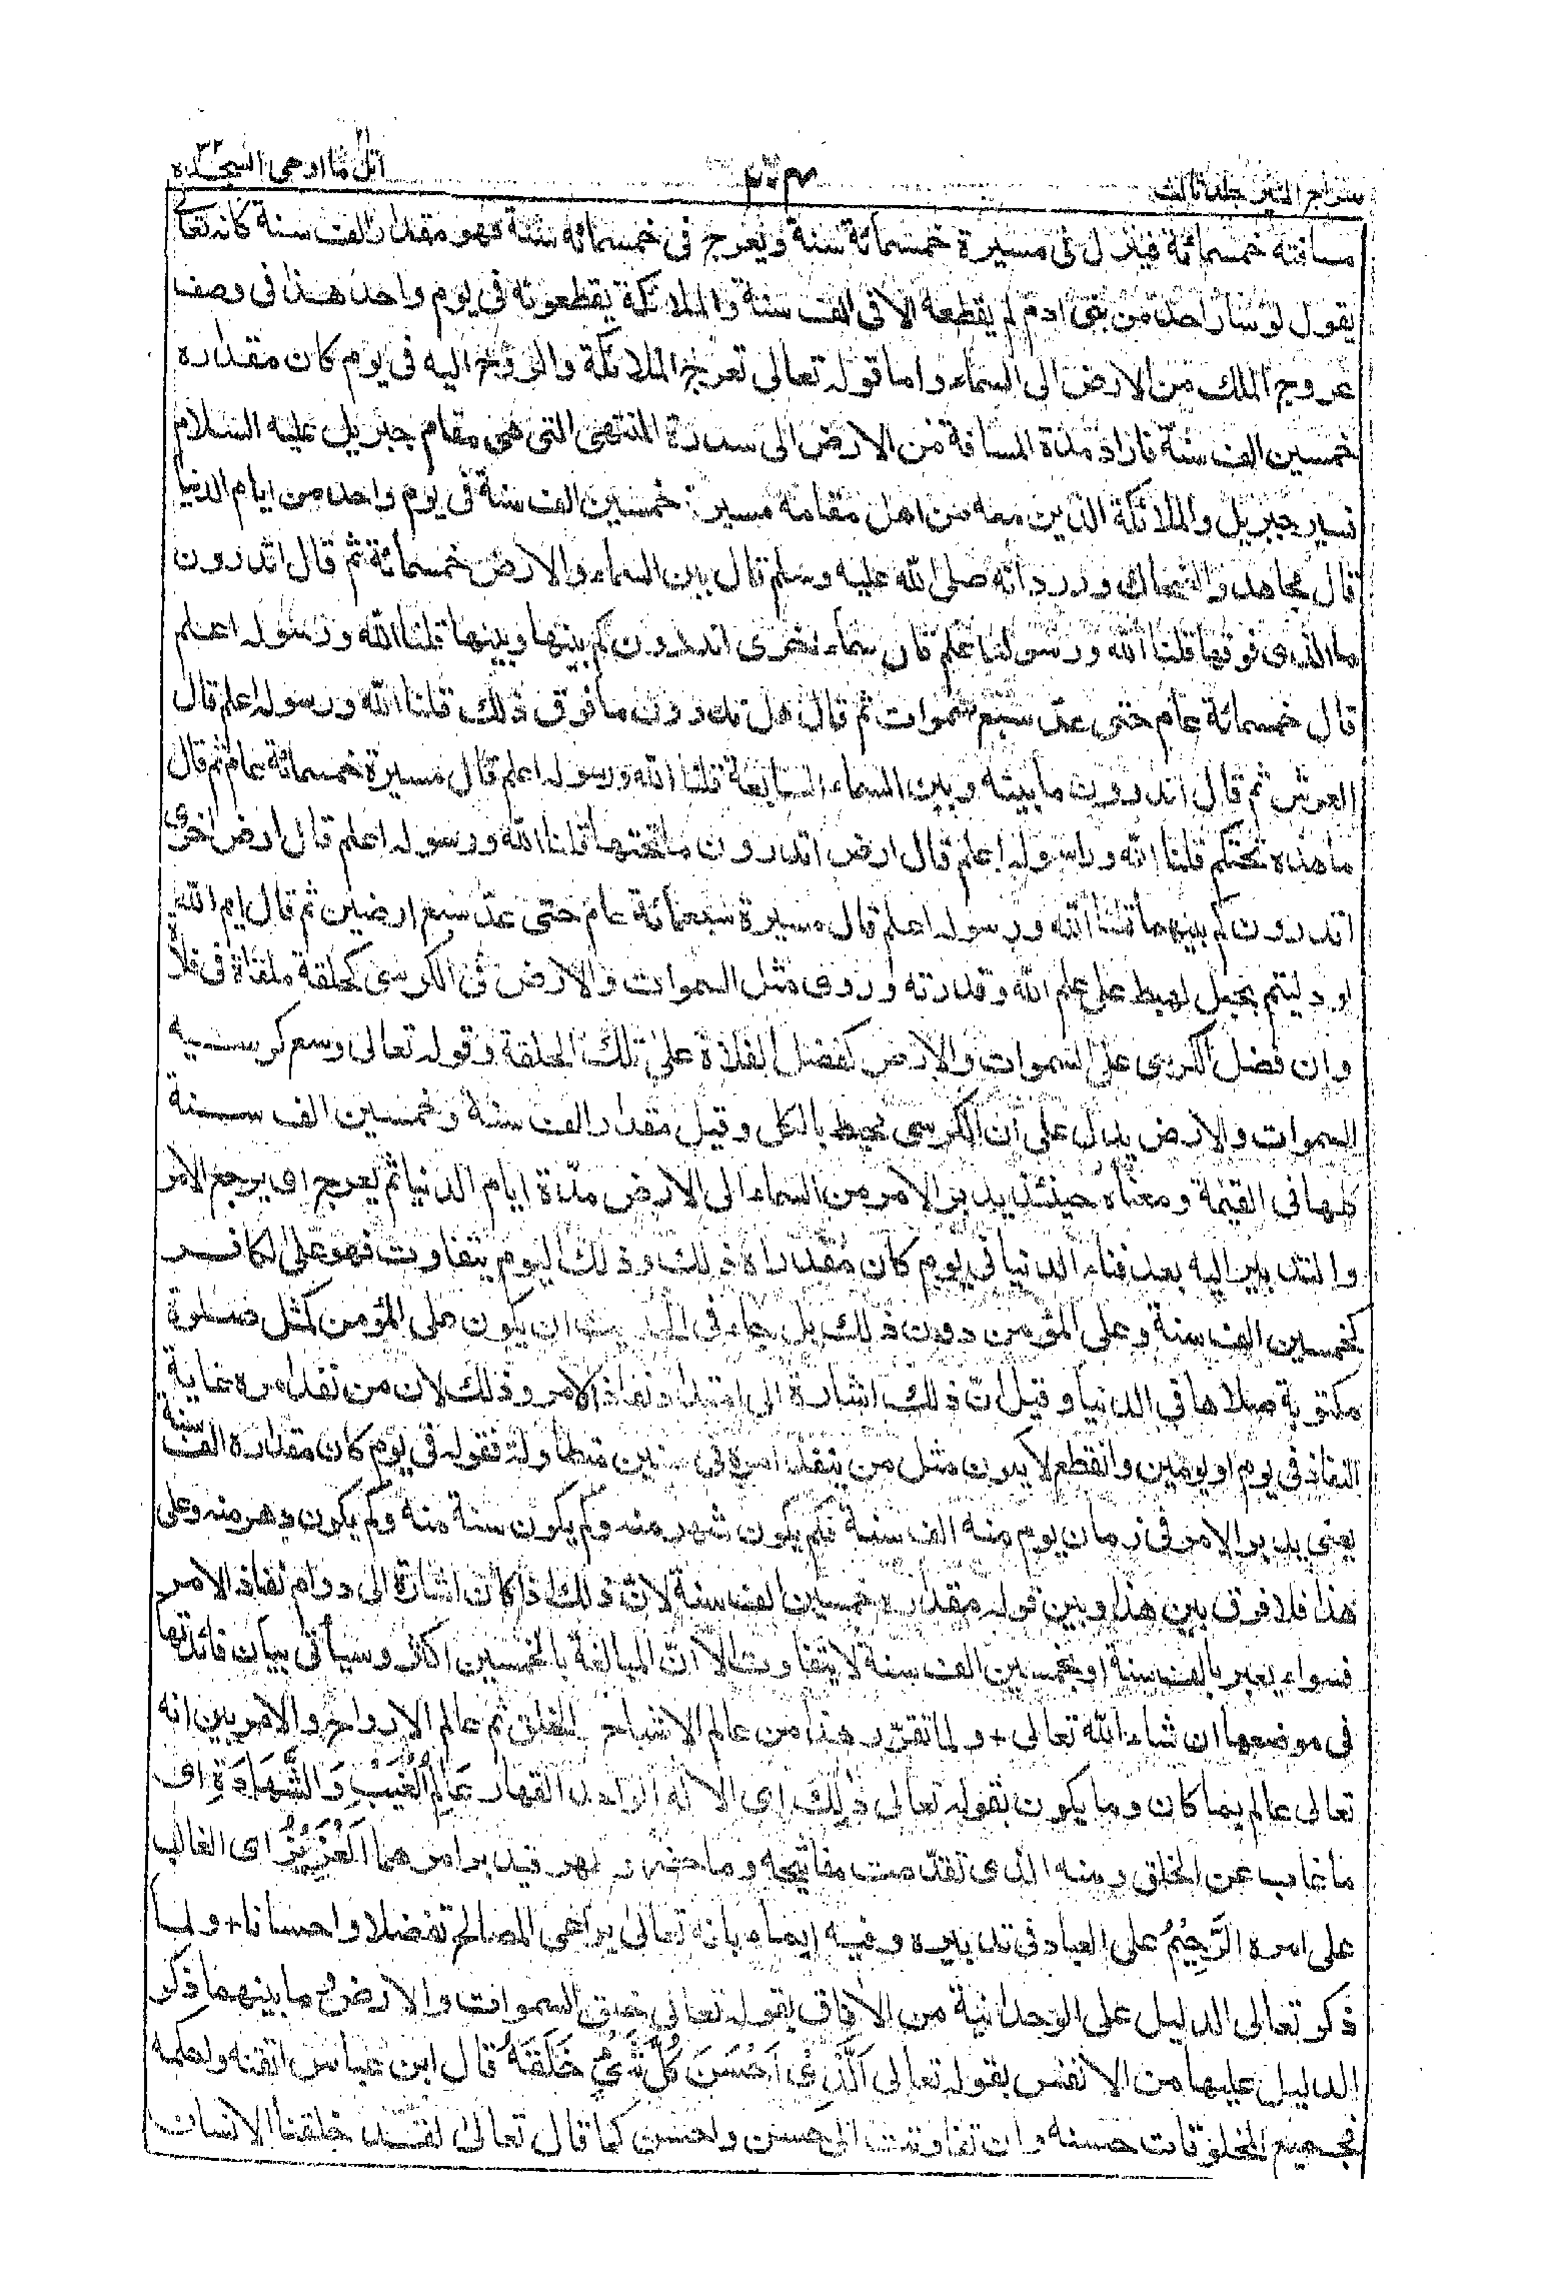 سراج المنير جلد ثالث
اتل ما اوحى ٢١ السجدة ٣٢
مسافته خمسمائة فينزل فى مسيرة خمسمائة سنة ويعرج فى خمسمائة سنة فهو مقدار الف سنة كانه تعالى
يقول لو سار احد من بنى ادم لم يقطعه الا فى الف سنة والملائكة يقطعونه فى يوم واحد هذا فى وصف
عروج الملك من الارض الى السماء واما قوله تعالى تعرج الملائكة والروح اليه فى يوم كان مقداره
خمسين الف سنة فاراد مدة المسافة من الارض الى سدرة المنتهى التى هى مقام جبريل عليه السلام
يسير جبريل والملائكة الذين معه من اهل مقامه مسيرة خمسين الف سنة فى يوم واحد من ايام الدنيا
قال مجاهد والضحاك وورد انه صلى الله عليه وسلم قال بين السماء والارض خمسمائة ثم قال اتدرون
ما الذى فوقها قلنا الله ورسوله اعلم قال سماء اخرى اتدرون كم بينها وبينها قلنا الله ورسوله اعلم
قال خمسمائة عام حتى عد سبع سموات ثم قال هل تدرون ما فوق ذلك قلنا الله ورسوله اعلم قال
العرش ثم قال اتدرون ما بينه وبين السماء السابعة قلنا الله ورسوله اعلم قال مسيرة خمسمائة عام ثم قال
ما هذه تحتكم قلنا الله ورسوله اعلم قال ارض اتدرون ما تحتها قلنا الله ورسوله اعلم قال ارض اخرى
اتدرون كم بينهما قلنا الله ورسوله اعلم قال مسيرة سبعمائة عام حتى عد سبع ارضين ثم قال ايم الله
لو دليتم بحبل لهبط على علم الله وقدرته وروى مثل السموات والارض فى الكرسى كحلقة ملقاة فى فلاة
وان فضل الكرسى على السموات والارض كفضل الفلاة على تلك الحلقة وقوله تعالى وسع كرسيه
السموات والارض يدل على ان الكرسى محيط بالكل وقيل مقدار الف سنة وخمسين الف سنة
كلها فى القيمة ومعناه حينئذ يدبر الامر من السماء الى الارض مدة ايام الدنيا ثم يعرج اى يرجع الامر
والتدبير اليه بعد فناء الدنيا فى يوم كان مقداره ذلك وذلك اليوم يتفاوت فهو على الكافر
كخمسين الف سنة وعلى المؤمن دون ذلك بل جاء فى الحديث ان يكون على المؤمن كمثل صلوة
مكتوبة صلاها فى الدنيا وقيل ان ذلك اشارة الى امتداد نفاذ الامر وذلك لان من نفذ امره غاية
النفاذ فى يوم او يومين وانقطع لا يكون مثل من ينفذ امره فى سنين متطاولة فقوله فى يوم كان مقداره الف سنة
يعنى يدبر الامر فى زمان يوم منه الف سنة فكم يكون شهر منه وكم يكون سنة منه وكم يكون دهر منه وعلى
هذا فلا فرق بين هذا وبين قوله مقداره خمسين الف سنة لان ذلك اذا كان اشارة الى دوام نفاذ الامر
فسواء يعبر بالف سنة او بخمسين الف سنة لا يتفاوت الا ان المبالغة بالخمسين اكثر وسيأتى بيان فائدتها
فى موضعها ان شاء الله تعالى + ولما تقرر هذا من عالم الاشباح والخلق ثم عالم الارواح والامر بين انه
تعالى عالم بما كان وما يكون بقوله تعالى ذٰلِكَ اى الاله الواحد القهار عَالِمُ الْغَيْبِ وَالشَّهَادَةِ اى
ما غاب عن الخلق ومنه الذى تقدمت مفاتيحه وما حضر وظهر فيدبر امرهما الْعَزِيْزُ اى الغالب
على امره الرَّحِيْمُ على العباد فى تدبيره وفيه ايماء بانه تعالى يراعى المصالح تفضلا واحسانا + ولما
ذكر تعالى الدليل على الوحدانية من الافاق بقوله تعالى خلق السموات والارض وما بينهما ذكر
الدليل عليها من الانفس بقوله تعالى اَلَّذِىْ اَحْسَنَ كُلَّ شَىْءٍ خَلَقَهٗ قال ابن عباس اتقنه واحكمه
فجميع المخلوقات حسنة وان تفاوتت الى حسن واحسن كما قال تعالى لقد خلقنا الانسان